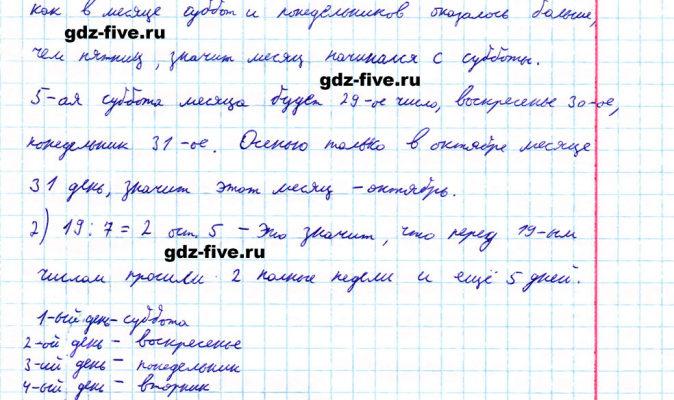 как в месяце суббот и понедельников оказалось больше,
gdz-five.ru
чем пятниц, значит месяц начинался с субботы.
gdz-five.ru
5-ая суббота месяца будет 29-ое число, воскресенье 30-ое,
понедельник 31-ое. Осенью только в октябре месяце
31 день, значит этот месяц - октябрь.
2) 19 : 7 = 2 ост. 5 - Это значит, что перед 19-ым
gdz-five.ru
числом прошли 2 полные недели и ещё 5 дней.
1-ый день - суббота
2-ой день - воскресенье
3-ий день - понедельник
4-ый день - вторник